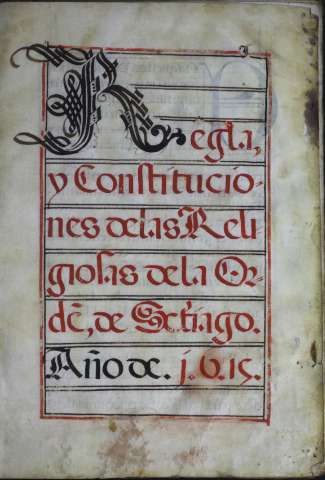 Regla,
y Constitucio-
nes delas Reli
giosas dela Or-
dē, de Sctiago.
Año de. 1.6.15.